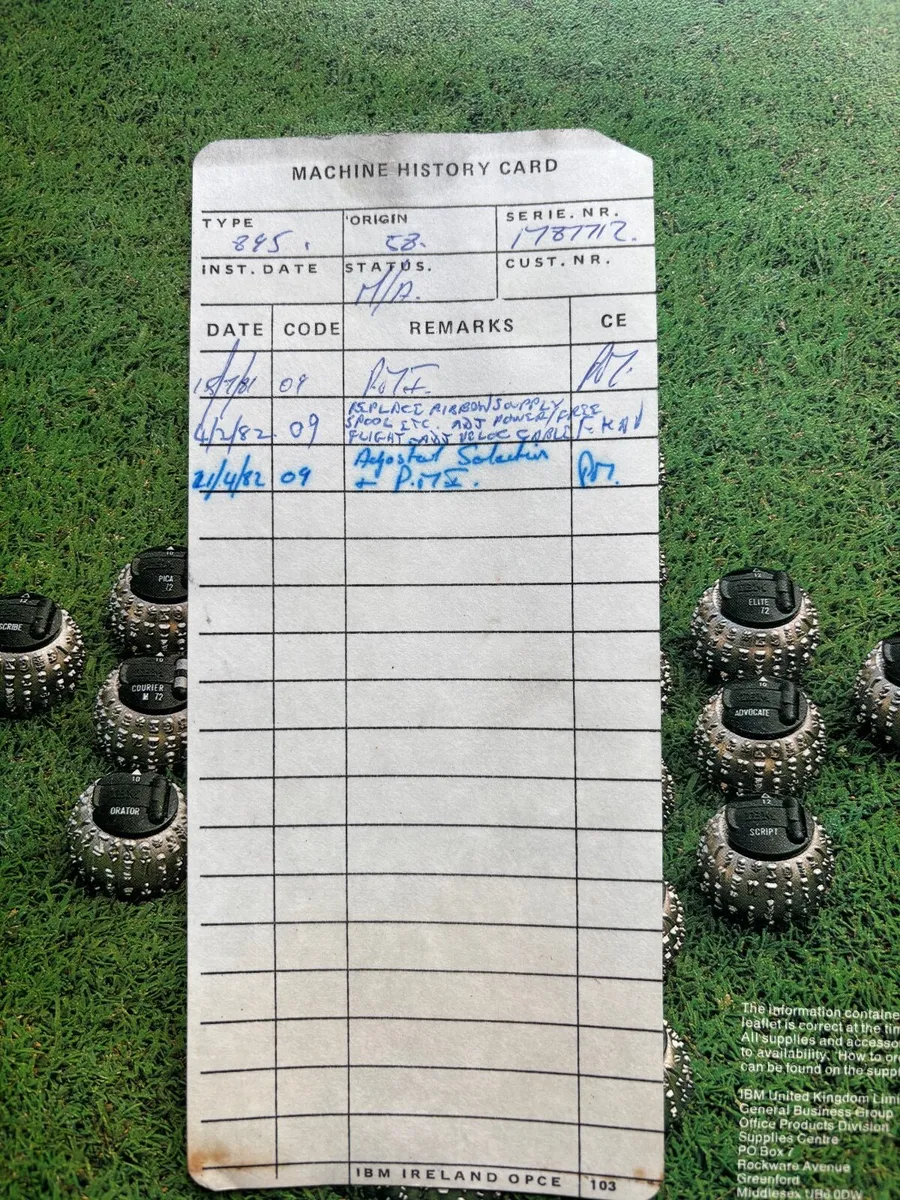 MACHINE HISTORY CARD
TYPE ORIGIN SERIE. NR.
895. 58. 1787712.
INST. DATE STATUS. CUST. NR.
M/A.
DATE CODE REMARKS CE
15/7/81 09 P.M.I. P.M.
REPLACE RIBBON SUPPLY
SPOOL ETC. ADJ POWER/FREE
4/2/82 09 FLIGHT ADJ VELOC CABLE
Adjusted Selection
21/4/82 09 + P.M.I. P.M.
10
PICA
72
12
SCRIBE
10
COURIER
M 72
10
ORATOR
12
ELITE
72
10
ADVOCATE
12
SCRIPT
The information containe
leaflet is correct at the tim
All supplies and accesso
to availability. How to or
can be found on the supp
IBM United Kingdom Limi
General Business Group
Office Products Division
Supplies Centre
PO Box 7
Rockware Avenue
Greenford
Middlesex UB6 0DW
IBM IRELAND OPCE 103